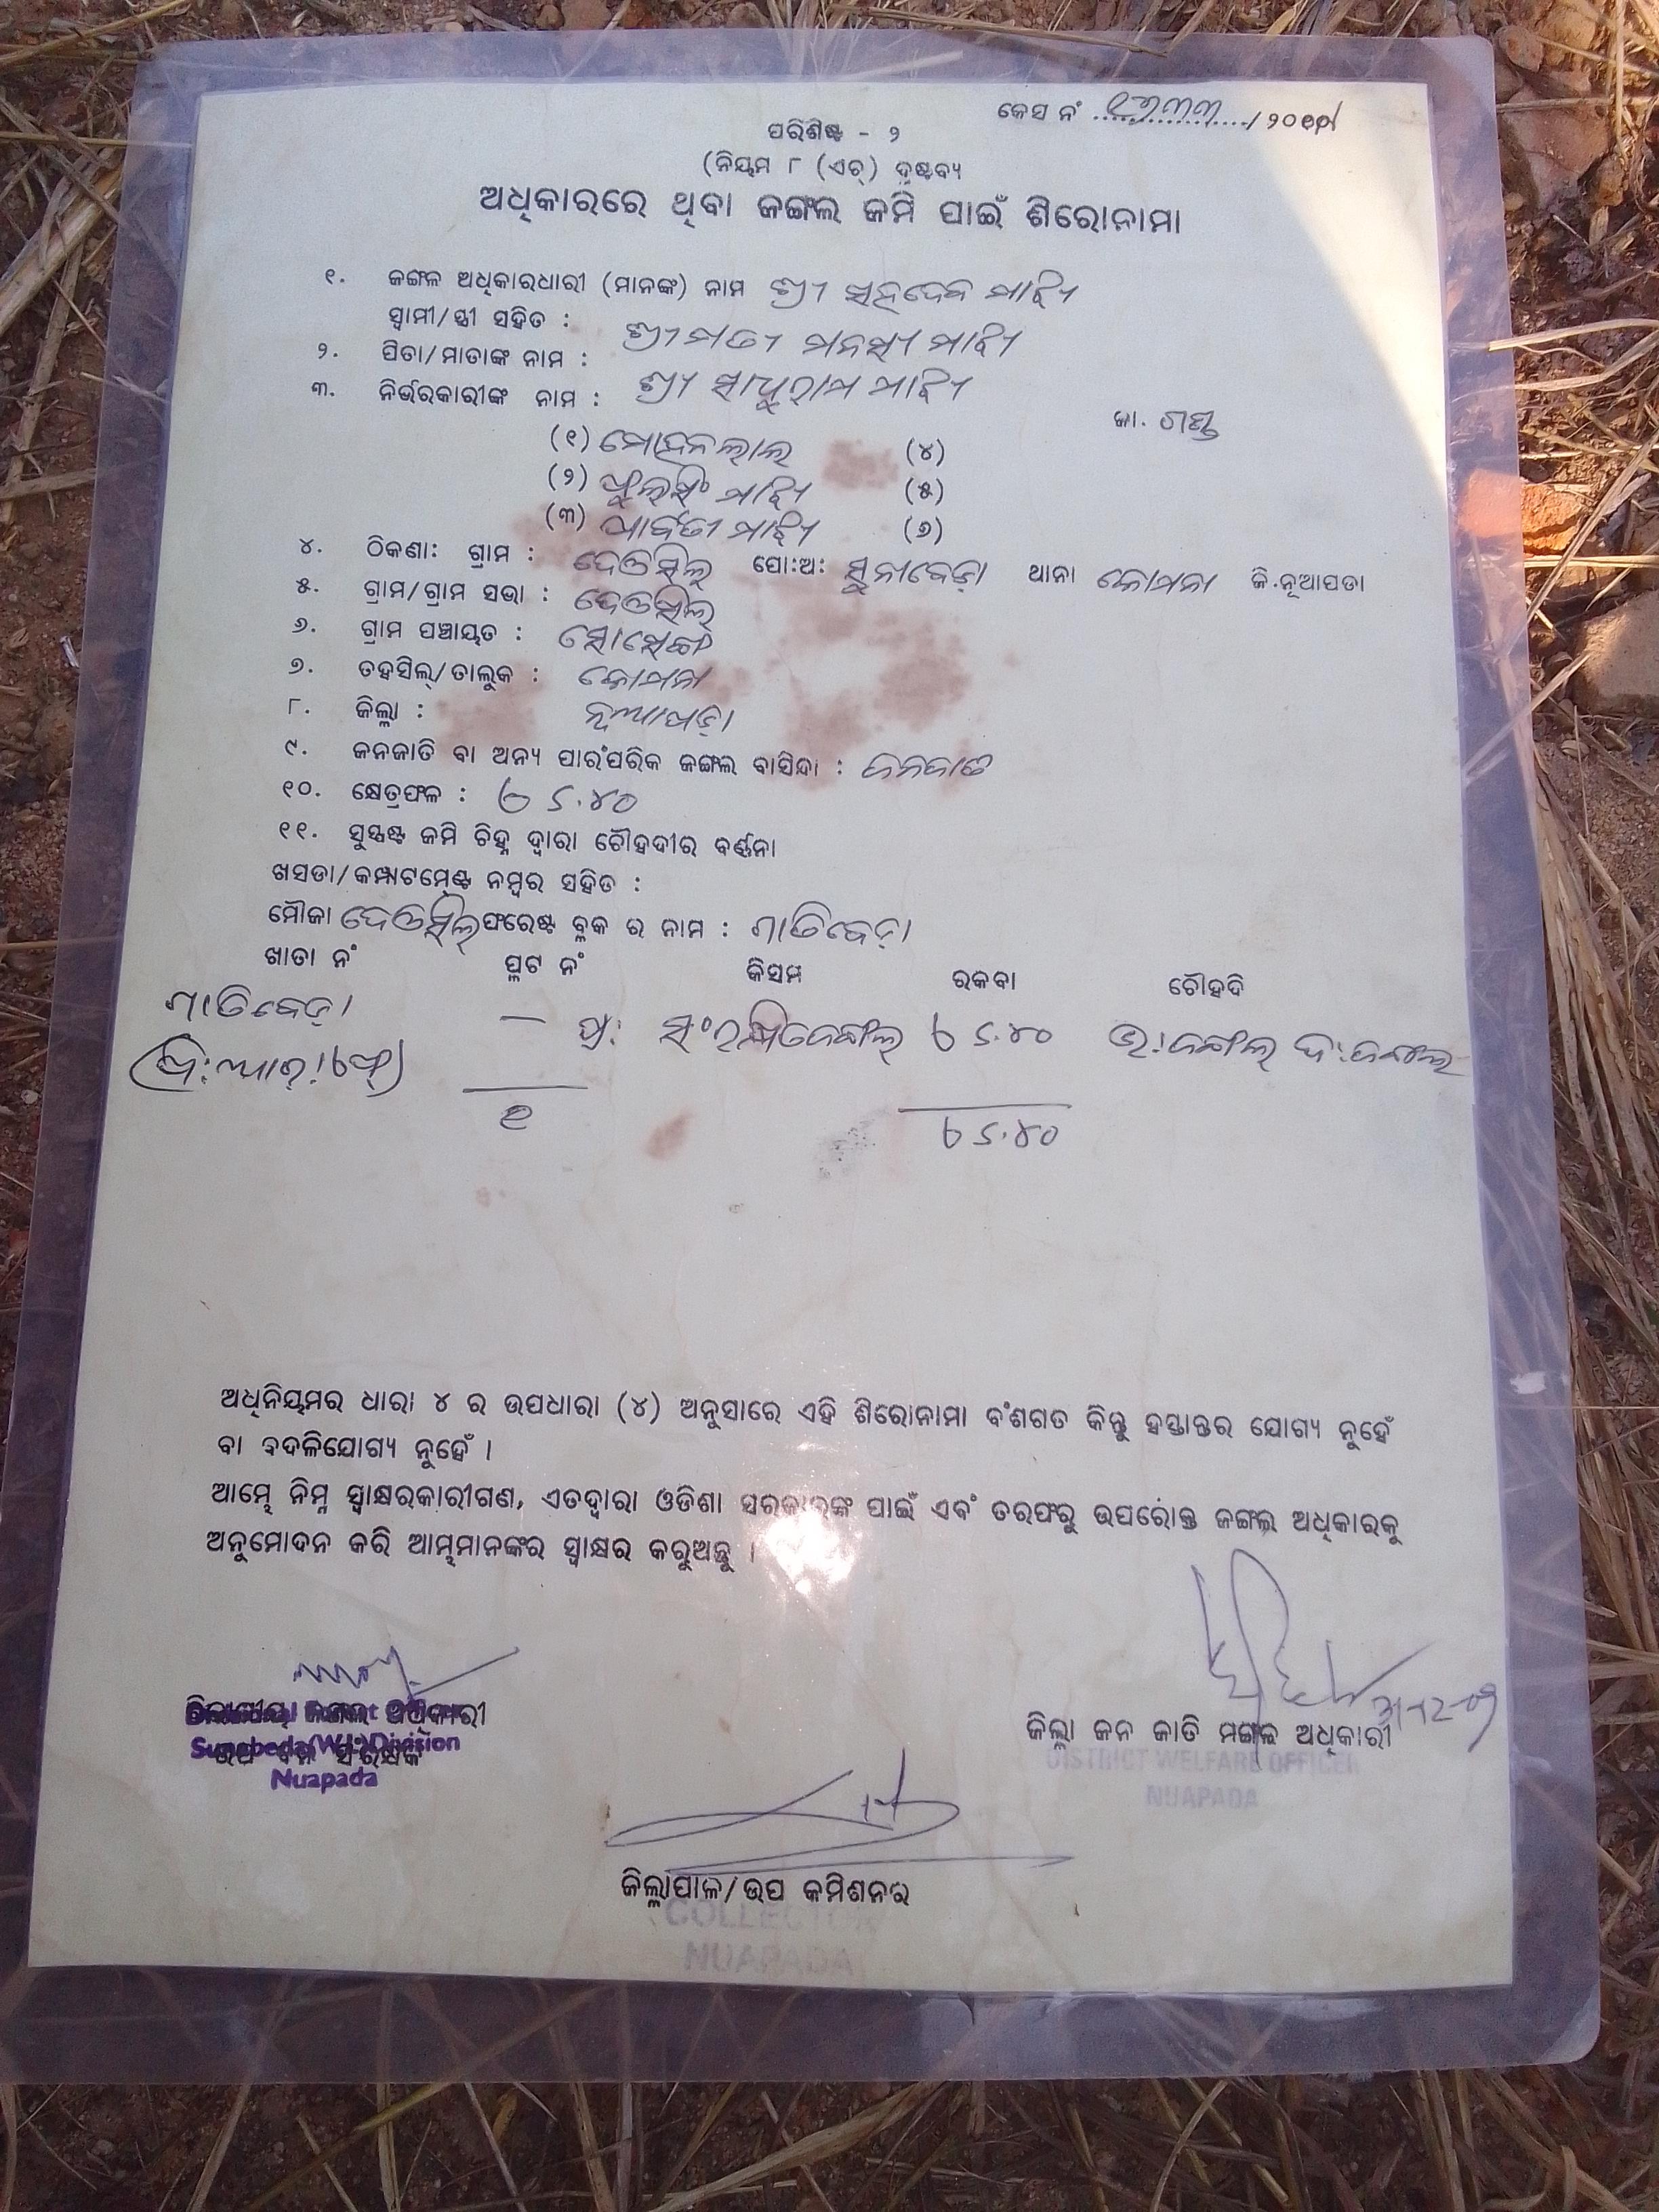 କେସ ନଂ ୧୬୩୩/୨୦
ପରିଶିଷ୍ଟ - ୨
(ନିୟମ ୮ (ଏଚ୍) ଦ୍ରଷ୍ଟବ୍ୟ
ଅଧିକାରରେ ଥିବା ଜଙ୍ଗଲ ଜମି ପାଇଁ ଶିରୋନାମା
୧. ଜଙ୍ଗଳ ଅଧିକାରଧାରୀ (ମାନଙ୍କ) ନାମ ଶ୍ରୀ ସହଦେବ ମାଝି
ସ୍ୱାମୀ/ସ୍ତ୍ରୀ ସହିତ : ଶ୍ରୀମତୀ ମନସୀ ମାଝି
୨. ପିତା/ମାତାଙ୍କ ନାମ : ଶ୍ରୀ ସାଧୁରାମ ମାଝି
୩. ନିର୍ଭରକାରୀଙ୍କ ନାମ : ଜା. ଗଣ୍ଡ
(୧) ମୋହନଲାଲ (୪)
(୨) ଫୁଲସିଂ ମାଝି (୫)
(୩) ପାର୍ବତୀ ମାଝି (୬)
୪. ଠିକଣା: ଗ୍ରାମ : ଦେଓସିଲ୍ ପୋ:ଅ: ସୁନାବେଡ଼ା ଥାନା କୋମନା ଜି.ନୂଆପଡା
୫. ଗ୍ରାମ/ଗ୍ରାମ ସଭା : ଦେଓସିଲ୍
୬. ଗ୍ରାମ ପଞ୍ଚାୟତ :
୭. ତହସିଲ୍/ତାଲୁକ : କୋମନା
୮. ଜିଲ୍ଲା : ନୂଆପଡ଼ା
୯. ଜନଜାତି ବା ଅନ୍ୟ ପାରଂପରିକ ଜଙ୍ଗଲ ବାସିନ୍ଦା : ଜନଜାତି
୧୦. କ୍ଷେତ୍ରଫଳ : ୪୦
୧୧. ସୁସ୍ପଷ୍ଟ ଜମି ଚିହ୍ନ ଦ୍ୱାରା ଚୌହଦୀର ବର୍ଣ୍ଣନା
ଖସଡା/କମ୍ପାଟମେଣ୍ଟ ନମ୍ବର ସହିତ :
ମୌଜା ଦେଓସିଲ୍ ଫରେଷ୍ଟ ବ୍ଲକ ର ନାମ : ପାତିବେଡ଼ା
ଖାତା ନଂ ପ୍ଲଟ ନଂ କିସମ ରକବା ଚୌହଦି
ପାତିବେଡ଼ା — ପ୍ର: ସଂରକ୍ଷିତଜଙ୍ଗଲ ୪୦ ଉ:ଜଙ୍ଗଲ ଦ:ଜଙ୍ଗଲ
୧
୪୦
ଅଧିନିୟମର ଧାରା ୪ ର ଉପଧାରା (୪) ଅନୁସାରେ ଏହି ଶିରୋନାମା ବଂଶଗତ କିନ୍ତୁ ହସ୍ତାନ୍ତର ଯୋଗ୍ୟ ନୁହେଁ
ବା ବଦଳିଯୋଗ୍ୟ ନୁହେଁ ।
ଆମ୍ଭେ ନିମ୍ନ ସ୍ୱାକ୍ଷରକାରୀଗଣ, ଏତଦ୍ୱାରା ଓଡିଶା ସରକାରଙ୍କ ପାଇଁ ଏବଂ ତରଫରୁ ଉପରୋକ୍ତ ଜଙ୍ଗଲ ଅଧିକାରକୁ
ଅନୁମୋଦନ କରି ଆମ୍ଭମାନଙ୍କର ସ୍ୱାକ୍ଷର କରୁଅଛୁ ।
31-12-09
ବିଭାଗୀୟ ଜଙ୍ଗଲ ଅଧିକାରୀ
ଉପ ବନ ସଂରକ୍ଷକ
Divisional Forest Officer
Sunabeda(W.L)Division
Nuapada
ଜିଲ୍ଲା ଜନ ଜାତି ମଙ୍ଗଳ ଅଧିକାରୀ
DISTRICT WELFARE OFFICER
NUAPADA
ଜିଲ୍ଲାପାଳ/ଉପ କମିଶନର
COLLECTOR
NUAPADA